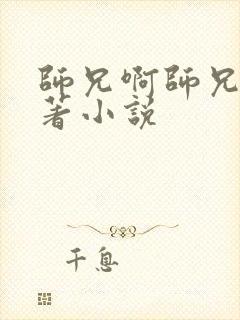 師兄啊師兄
著小説
千息